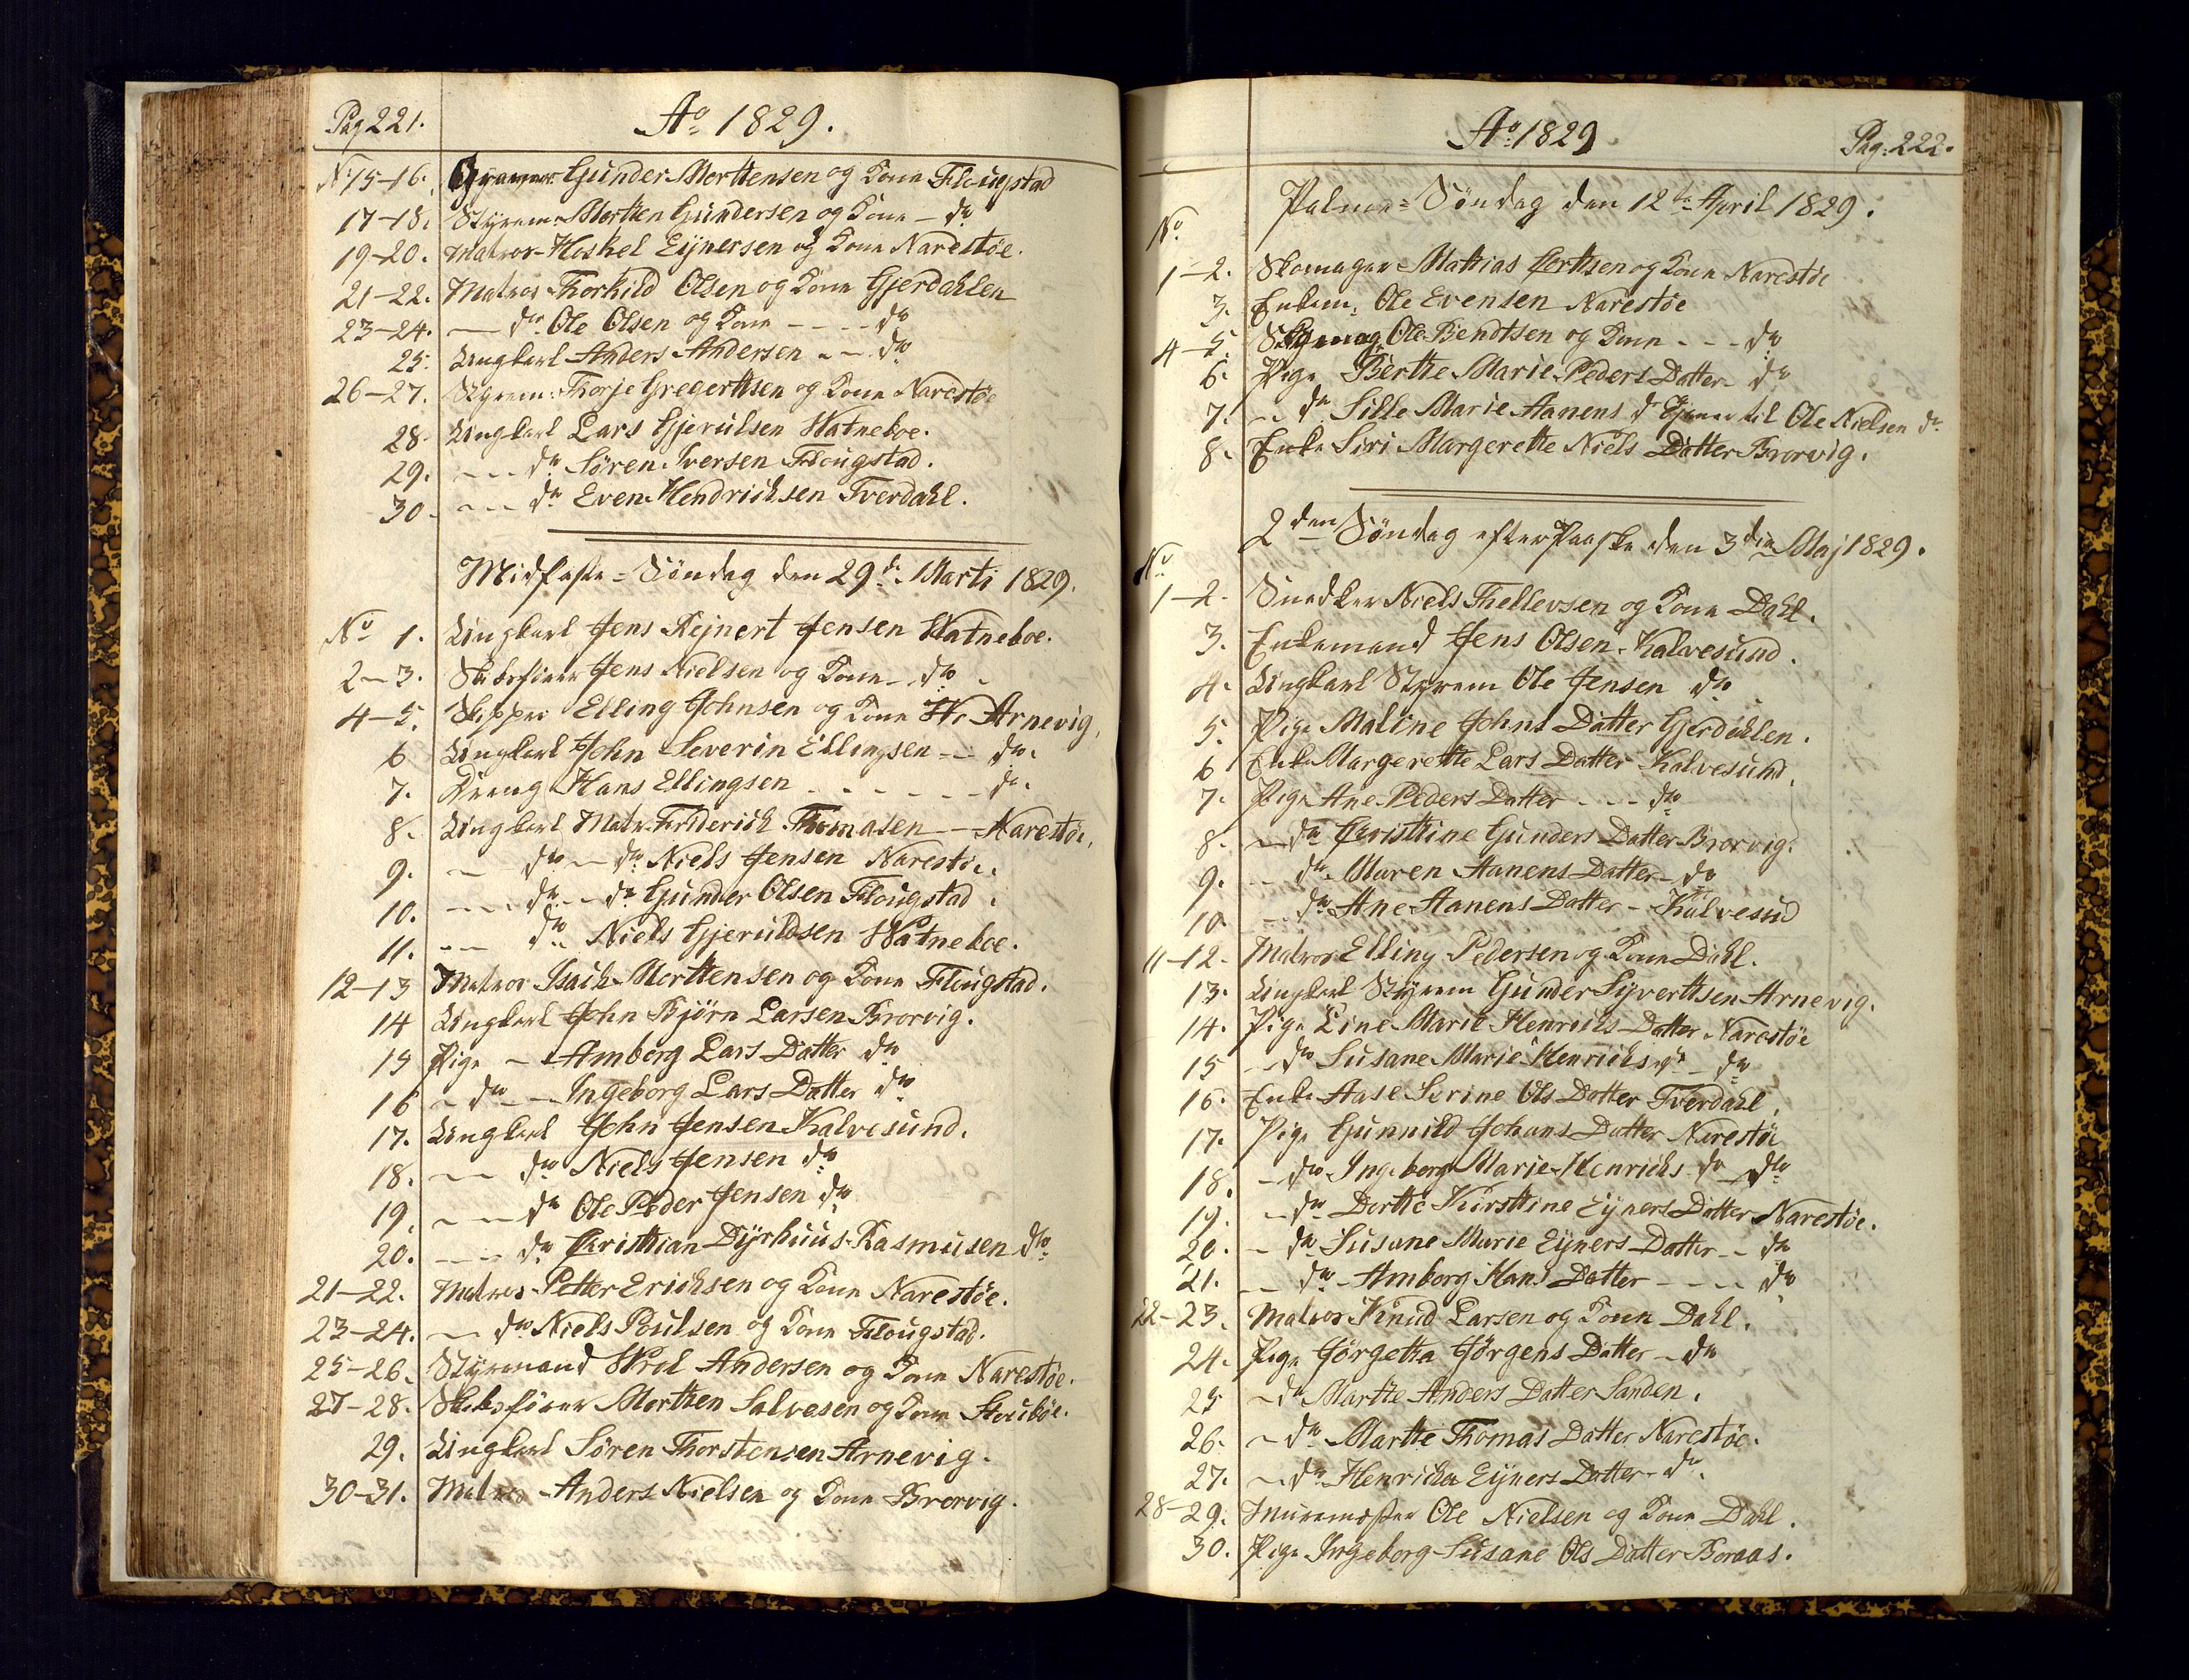 Pag 221.
Ao 1829.
No 15-16. Gunder Morttensen og Kone Flougstad
17-18. Styrem: Mortten Gundersen og Kone - do
19-20. Matros Hoskel Eÿnersen og Kone Narestöe.
21-22. Matros Thorkild Olsen og Kone Gjerdahlen
23-24. — do Ole Olsen og Kone - - - - do
25. Ungkarl Anders Andersen - - do
26-27. Styrem: Thorje Gregerttsen og Kone Narestöe
28. Ungkarl Lars Gjerulsen Watneboe.
29. - - - do Sören Iversen Flougstad.
30. - - - do Even Hendrichsen Tverdahl.
Midfaste-Söndag den 29de Marti 1829.
No 1. Ungkarl Jens Rejnert Jensen Watneboe.
2-3. Skibsfører Jens Nielsen og Kone - do
4-5. Skipper Elling Johnsen og Kone W: Arnevig,
6 Ungkarl John Severin Ellingsen - - do.
7. Dreng Hans Ellingsen - - - - - - do.
8. Ungkarl Matr. Friderich Thomasen - - Narestöe,
9. - do - do Niels Jensen Narestöe.
10. - - - do - do Gunder Olsen Flougstad.
11. - - do Niels Gjeruldsen Watneboe.
12-13 Matros Isach Morttensen og Kone Flougstad.
14 Ungkarl John Björn Larsen Brorvig.
15 Pige - Amborg Lars Datter do
16 - do - - Ingeborg Lars Datter do
17. Ungkarl John Jensen Kalvesund.
18. - - do Niels Jensen do
19. - - - do Ole Peder Jensen do
20. - - - do Christian Dÿrhuus Rasmusen do
21-22. Matros Petter Erichsen og Kone Narestöe.
23-24. - do Niels Poulsen og Kone Flougstad.
25-26. Styrmand Wrol Andersen og Kone Narestöe.
27-28. Skibsfører Mortten Salvesen og Kone Stouböe.
29. Ungkarl Sören Thorstensen Arnevig.
30-31. Matros Anders Nielsen og Kone Brorvig.
Ao 1829
Pag: 222.
Palme-Söndag den 12te April 1829.
No
1-2. Skomager Mattias Corttsen og Kone Narestöe
3. Enkem: Ole Evensen Narestöe
4-5. Ole Bendtsen og Kone - - - do
6. Pige Berthe Marie Peders Datter do
7. - do Sille Marie Aanens d til Ole Nielsen do
8. Enke Siri Margerette Niels Datter Brorvig.
2den Söndag efter Paaske den 3die Maj 1829.
No
1-2. Snedker Niels Thellevsen og Kone Dahl.
3. Enkemand Jens Olsen Kalvesund.
4. Ungkarl Styrem Ole Jensen do
5. Pige Maline Johns Datter Gjerdahlen.
6 Enke Margerette Lars Datter Kalvesund.
7. Pige Ane Peders Datter - - - do
8. - do Christine Gunders Datter Brorvig.
9. - - do Maren Aanens Datter - do
10. - do Ane Aanens Datter - Kalvesud
11-12. Matros Elling Pedersen og Kone Dahl.
13. Ungkarl Styrem Gunder Sÿverttsen Arnevig.
14. Pige Line Marie Henrichs Datter Narestöe
15 - do Susane Marie Henrichs dr - do
16. Enke Aase Serine Ols Datter Tverdahl.
17. Pige Gunnild Johans Datter Narestöe
18. - do Ingeborg Marie Henrichs do do
19. - do Dortte Kirsttine Eÿners Datter Narestöe.
20. - do Susane Marie Eÿners Datter - - do
21. - - do Amborg Hans Datter - - - - do
22-23. Matros Knud Larsen og Kone Dahl.
24. Pige Jörgetta Jörgens Datter - do
25 - do Martte Anders Datter Sanden.
26. - do Martte Thomas Datter Narestöe.
27. - do Henricka Eÿners Datter - do.
28-29. Ole Nielsen og Kone Dahl.
30. Pige Ingeborg Susane Ols Datter Boraas.